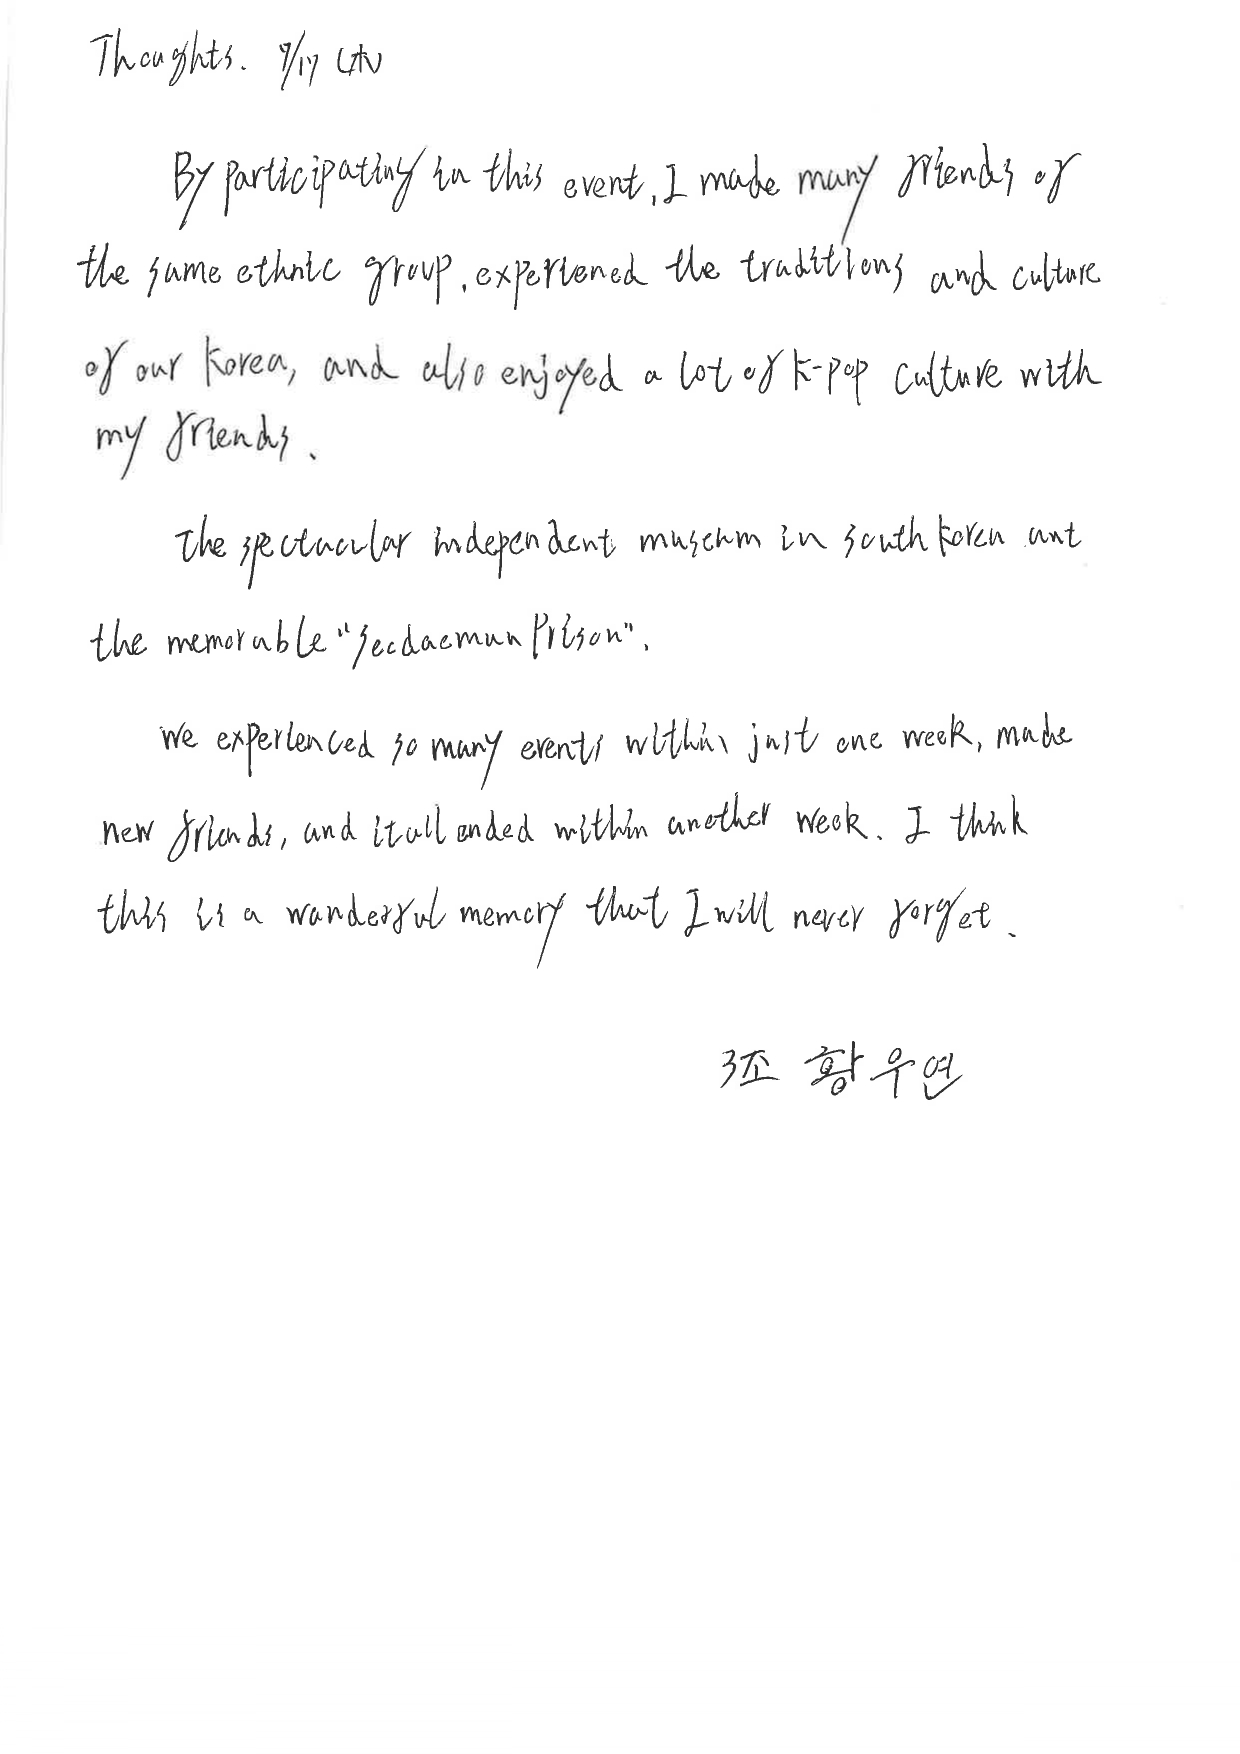 Thoughts. 7/17
By participating in this event, I made many friends of
the same ethnic group, experienced the traditions and culture
of our Korea, and also enjoyed a lot of K-pop culture with
my friends.
The spectacular independent museum in south Korea ant
the memorable "Seodaemun Prison".
We experienced so many events within just one week, made
new friends, and it all ended within another week. I think
this is a wanderful memory that I will never forget.
3조 황우연